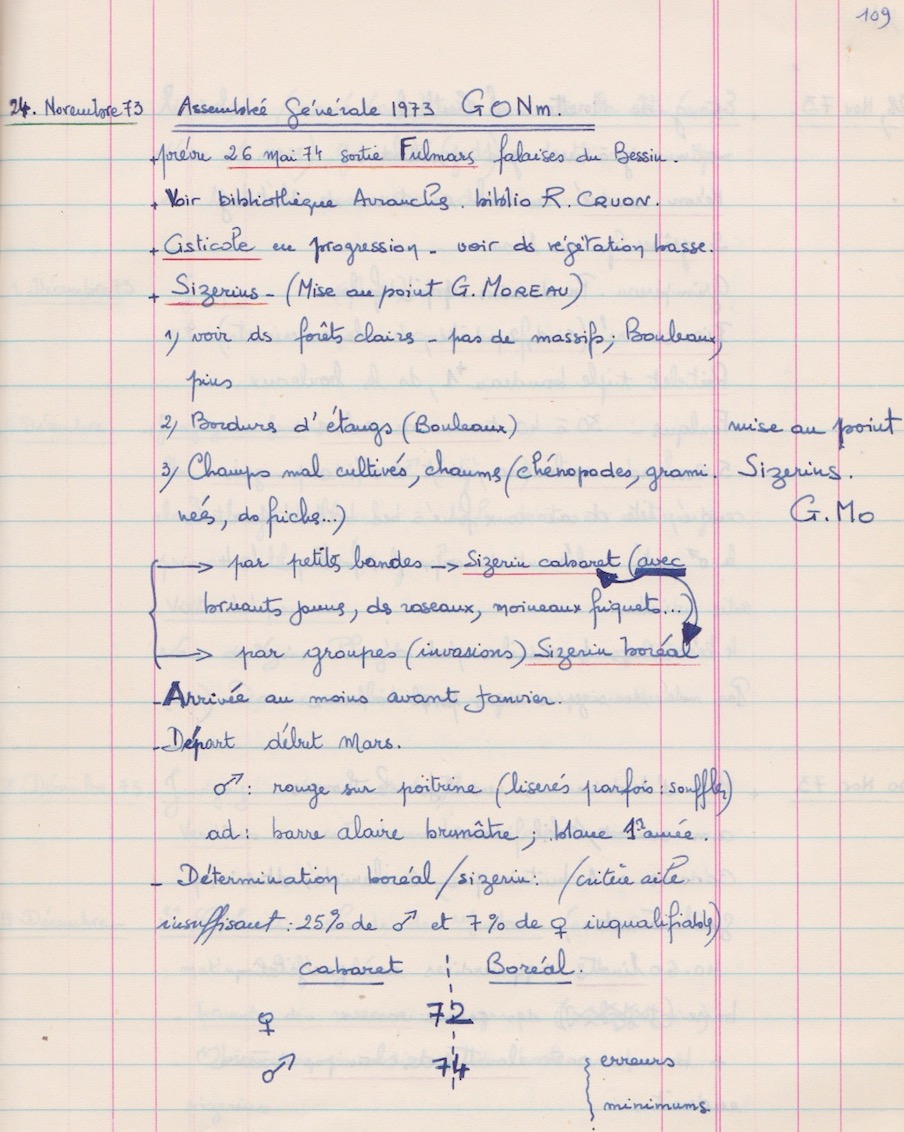 109
24. Novembre 73 Assemblée Générale 1973 GONm.
+ prévu 26 mai 74 sortie Fulmars falaises du Bessin.
+ Voir bibliothèque Avranches. biblio R. CRUON.
+ Cisticole en progression - voir ds végétation basse.
+ Sizerins - (Mise au point G. MOREAU)
1) voir ds forêts claires - pas de massifs; Bouleaux,
pins
2) Bordures d'étangs (Bouleaux)
3) Champs mal cultivés, chaumes (chénopodes, grami.
nées, ds friches...)
mise au point
Sizerins.
G.Mo
→ par petites bandes → Sizerin cabaret (avec
bruants jaunes, des roseaux, moineaux friquets...)
→ par groupes (invasions) Sizerin boréal
- Arrivée au moins avant Janvier.
- Départ début Mars.
♂ : rouge sur poitrine (liserés parfois : souffler)
ad : barre alaire brunâtre ; blanc 1º année.
- Détermination boréal / sizerin. (critère aile
insuffisant : 25% de ♂ et 7% de ♀ inqualifiables)
cabaret Boréal.
♀ 72
♂ 74
erreurs
minimums.